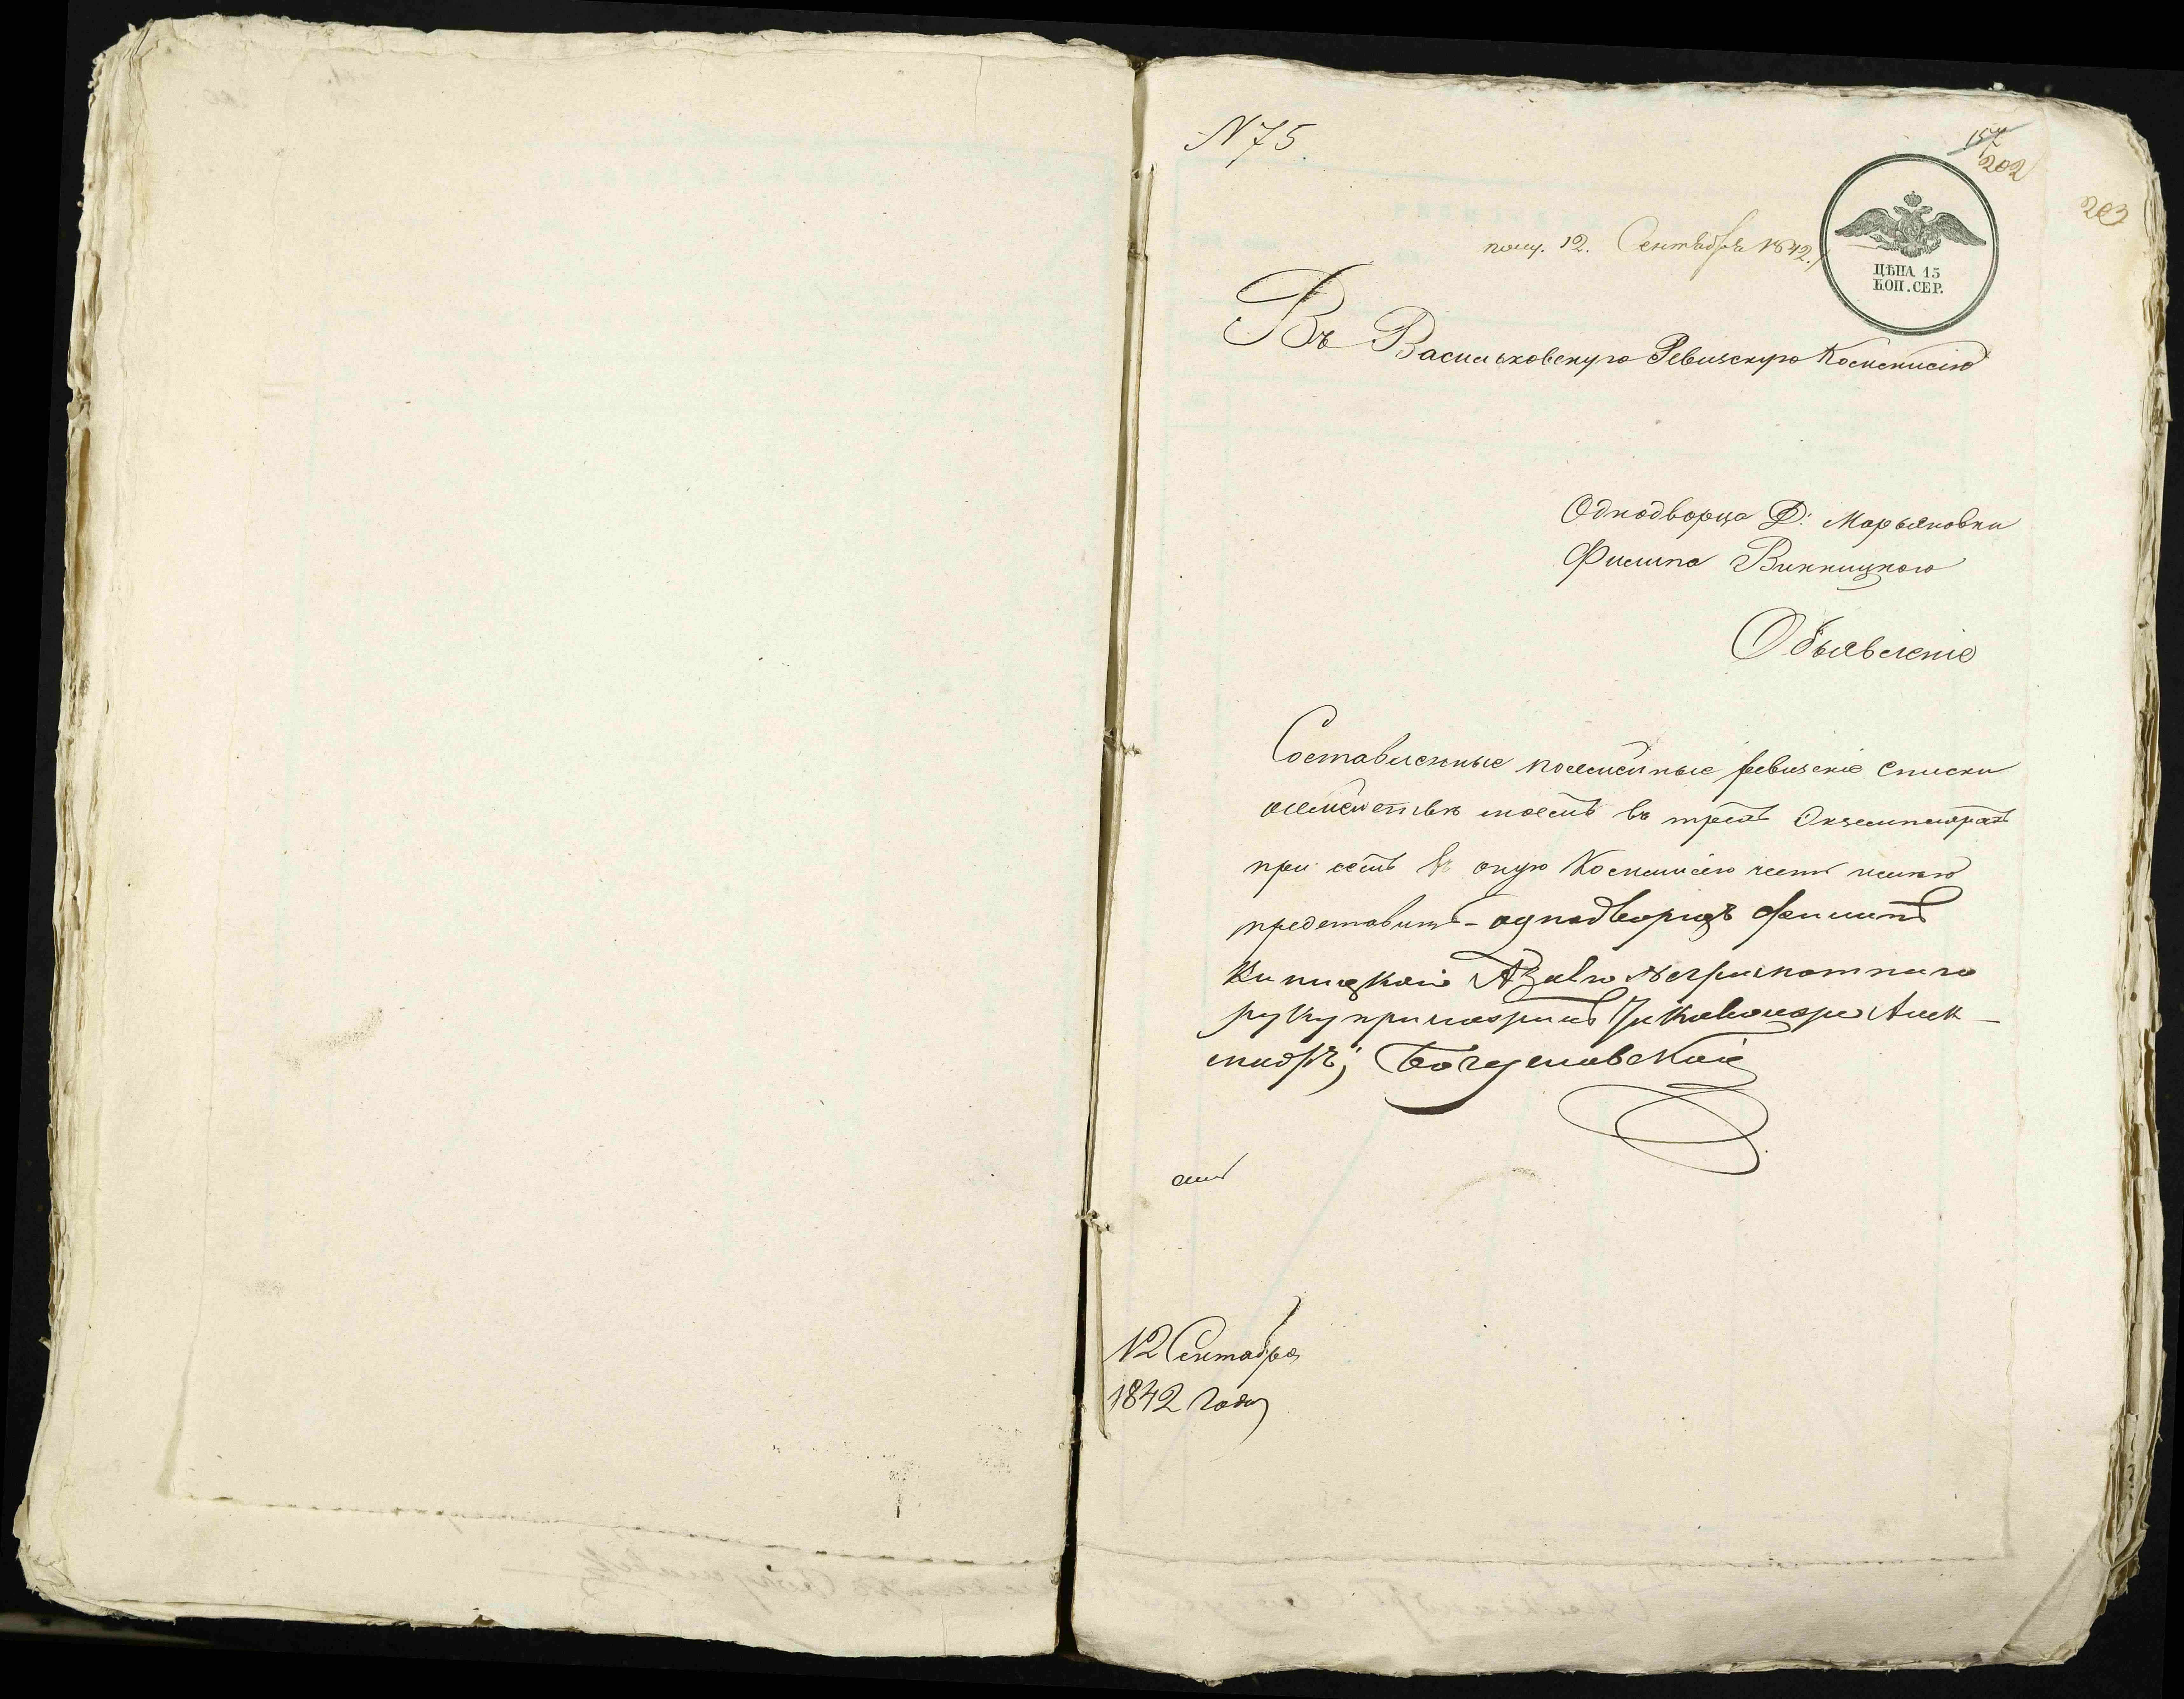 N 75
157
202
203
полу. 12. Сентября 1842.
ЦѢНА 15
КОП. СЕР.
Въ Васильковскую Ревизскую Коммисию
Однодворца Д: Марьяновки
Филипа Винницкого
Объявленіе
Составленные посемейные ревизскіе списки
о семействѣ моемъ въ трехъ Экземплярахъ
при семъ въ оную Коммисію честь имею
представить - однодворецъ Филипъ
Виницкой А за его неграмотного
руку приложилъ Алек-
сандръ Богуславской
12 Сентября
1842 года